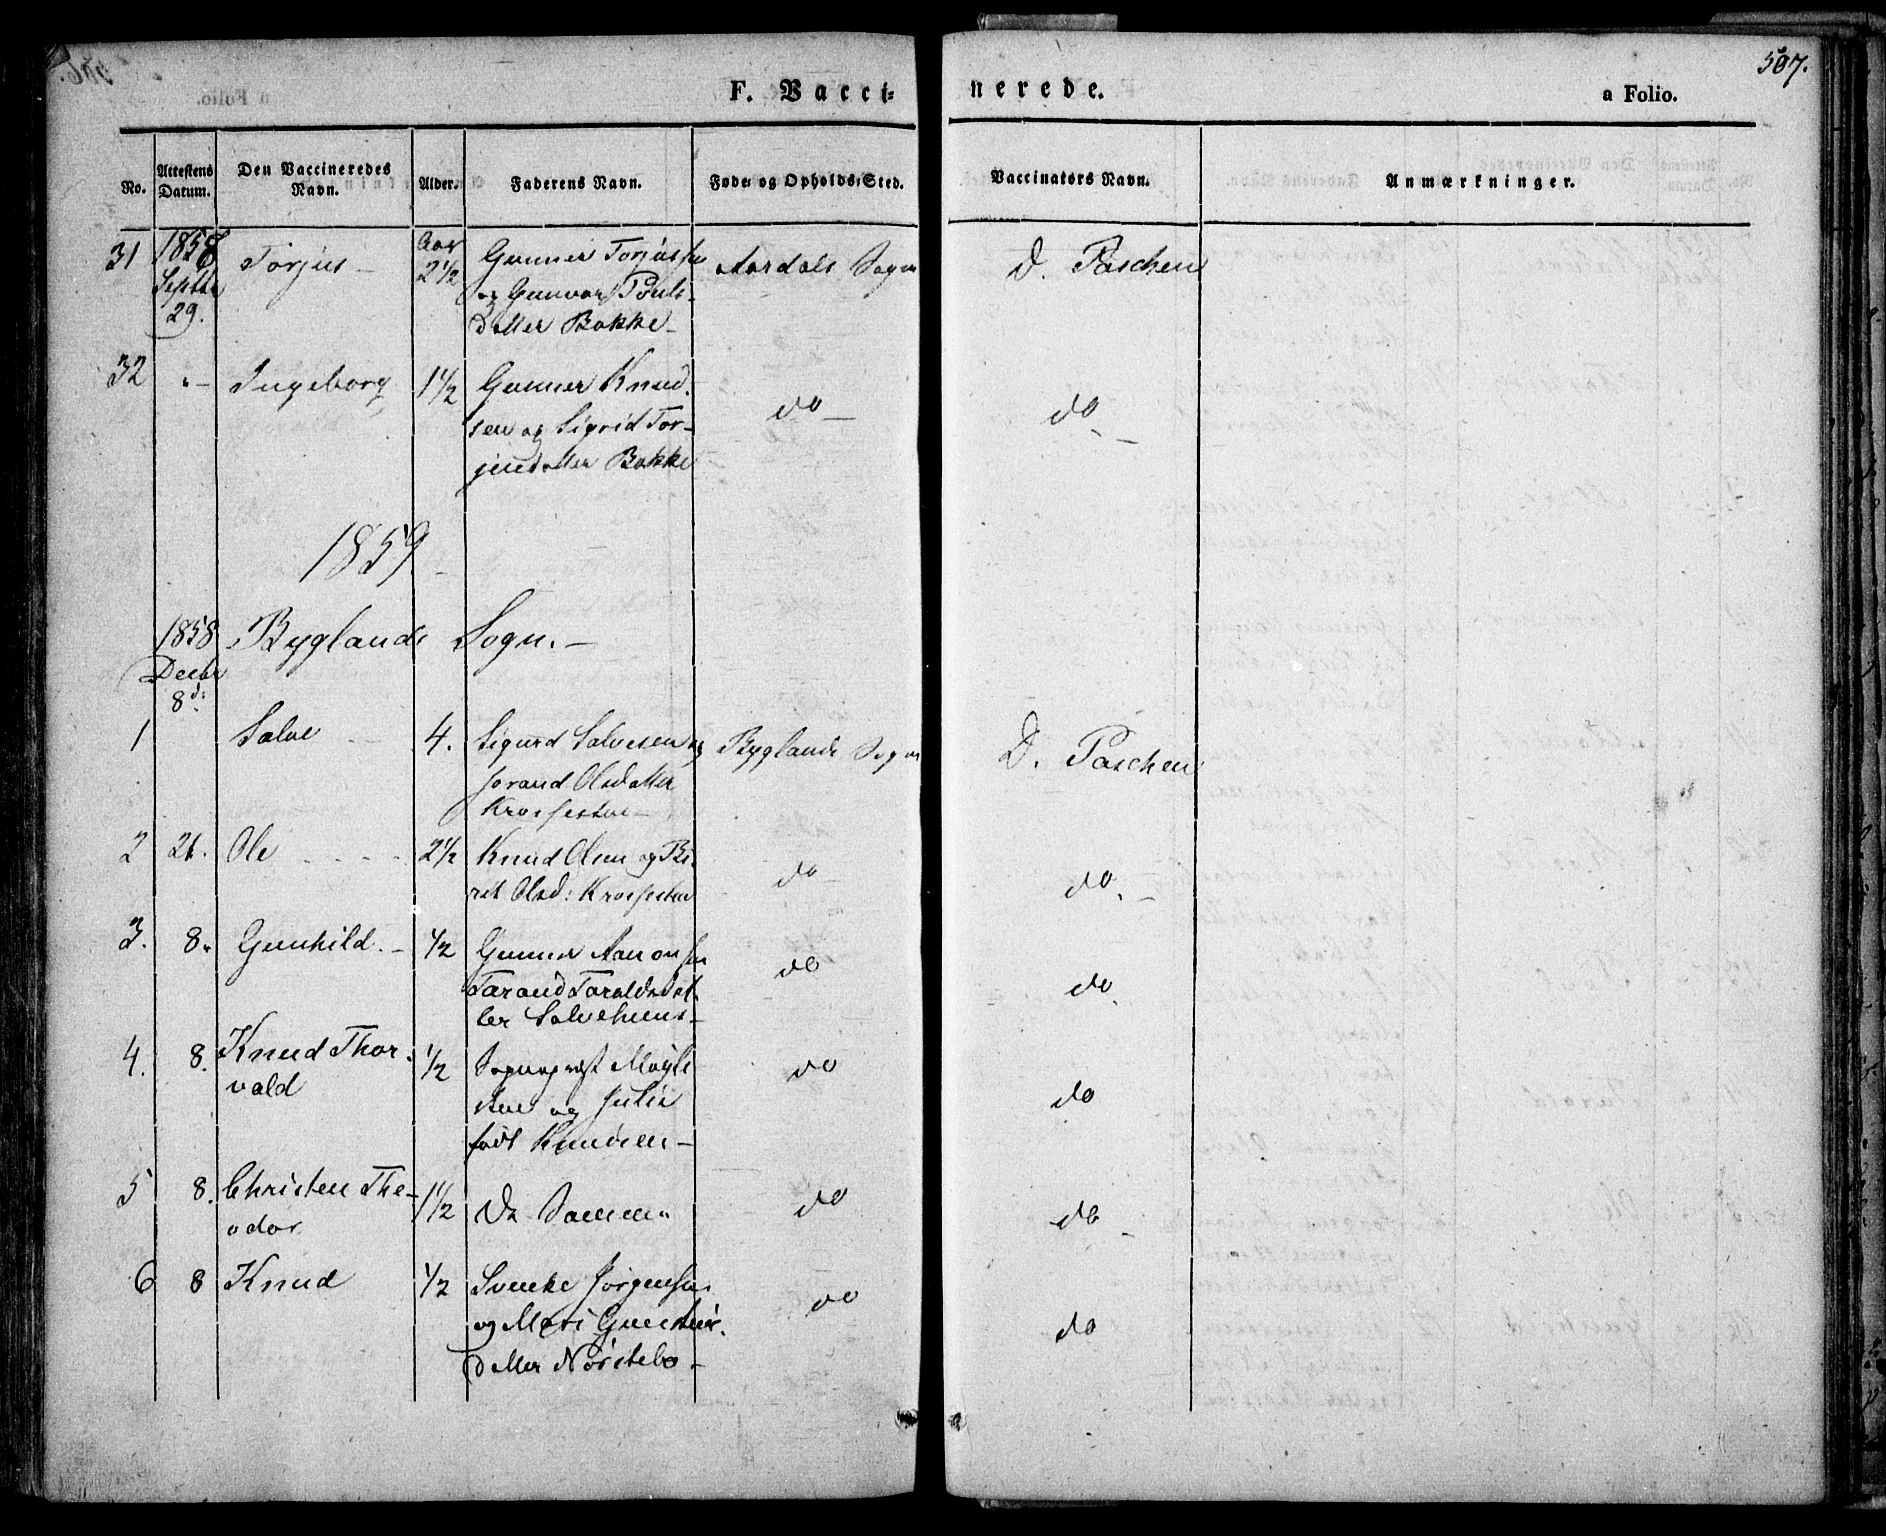 507.
F. Vacci-
nerede.
a Folio.
No.
Attestens Datum.
Den Vaccineredes Navn.
Alder.
Faderens Navn.
Føde- og Opholds-Sted.
Vaccinators Navn.
Anmærkninger.
31 1858 Torjus — Aar Gunner Torjussen Aardals Sogn D. Paschen
Septbr 2½ og Gunvor Pouls-
29. datter Bakke —
32 "— Ingeborg 1½ Gunner Knud- do — do —
sen og Sigrid Tor-
jusdatter Bakke
1859
1858 Byglands Sogn. —
Decbr
8d:
1 Salve 4. Sigurd Salvesen og Byglands Sogn D. Paschen
Jorand Olsdatter
2 21. Ole 2½ Knud Olsen og Bi- do — do. —
ret Olsd:
3. 8. Gunhild. — ½ Gunner Aanonsen do do
Tarand Taraldsdat-
ter
4. 8. Knud Thor- ½ og Julie do do
vald født Knudsen —
5 8. Christen The- 1½ De Samme do do —
odor
6 8 Knud ½ Jørgensen do do
og Mari
datter